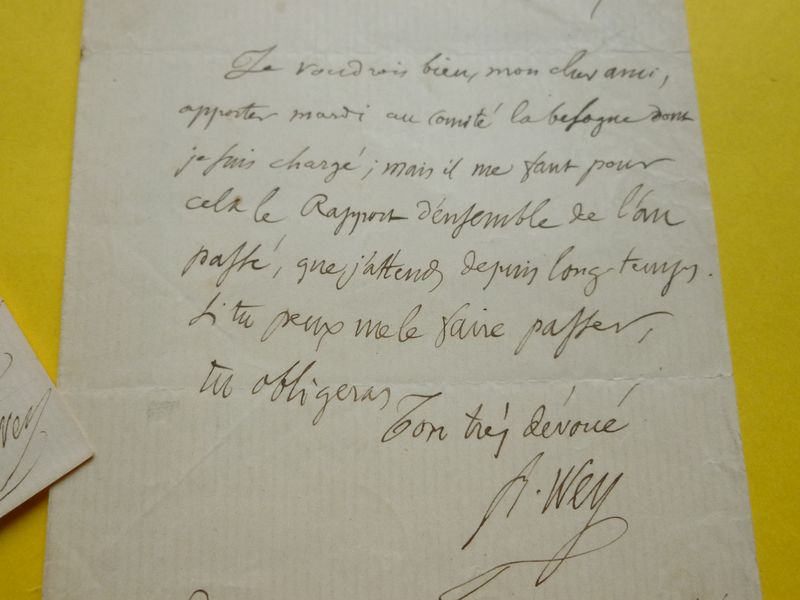 Je voudrois bien, mon cher ami,
apporter mardi au comité la besogne dont
je suis chargé; mais il me faut pour
cela le Rapport d'ensemble de l'an
passé, que j'attends depuis long-temps.
Si tu peux me le faire passer,
tu obligeras
Ton très dévoué
F. Wey